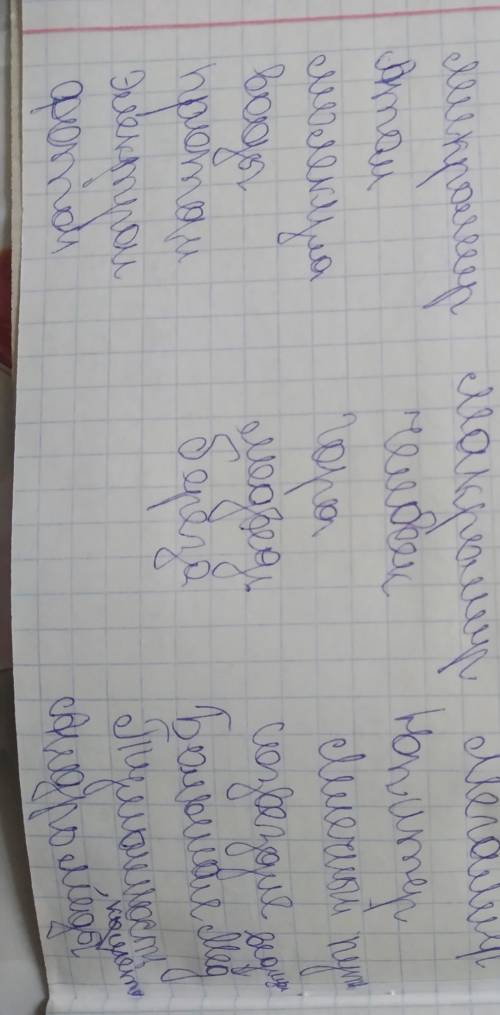 Микромир
атом
молекула
воды
протон
электрон
фотон
Макромир
Человек
Гора
медведь
берёза
Мегамир
Юпитер
Млечный путь
созвездие
Большие Мед
ведицы
Туманность
Андромеды